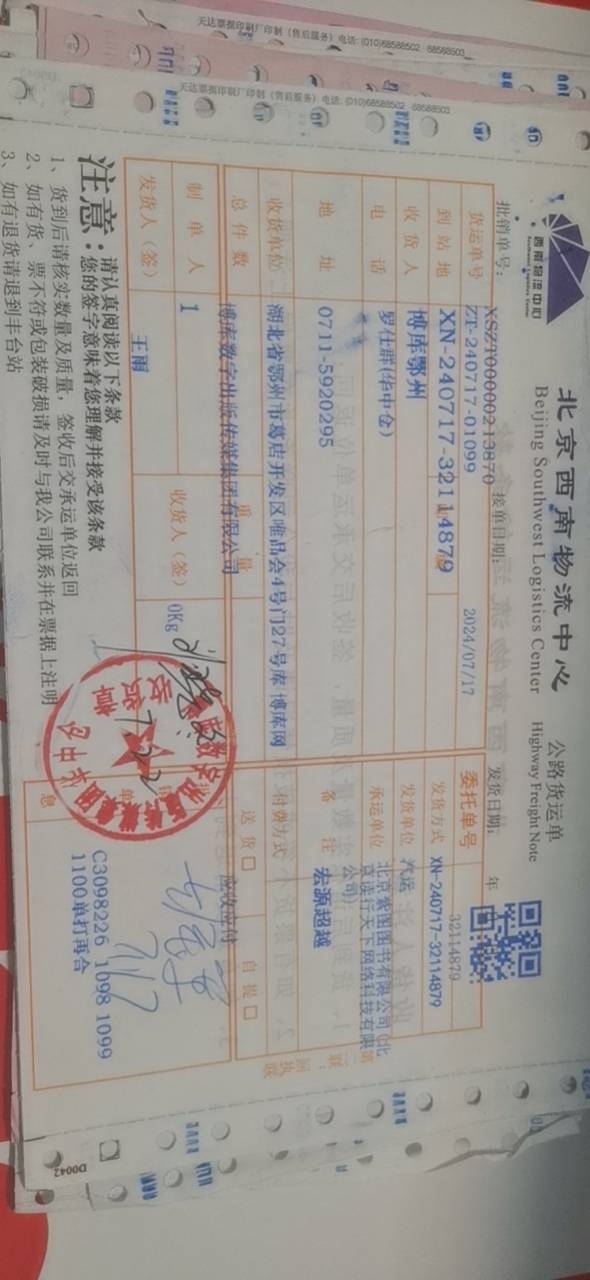 天达票据印刷厂印制（售后服务）电话: (010)68588502 68588503
天达票据印刷厂印制（售后服务）电话: (010)68588502 68588503
西南物流中心
Southwest Logistics Center
北京西南物流中心 公路货运单
Beijing Southwest Logistics Center Highway Freight Note
批销单号: XSZT00000213870 接单日期: 2024/07/17 发货日期: 年
货运单号 ZT-240717-01099 委托单号 32114879
到站地 XN-240717-32114879 发货方式 XN-240717-32114879
收货人 博库鄂州 发货单位 汽运
电话 罗仕群(华中仓) 承运单位 北京紫图图书有限公司（北京读行天下网络科技有限公司）
地址 0711-5920295 备注 宏源超越
收货单位 湖北省鄂州市葛店开发区唯品会4号门27号库 博库网 付费方式
总件数 博库数字出版传媒集团有限公司 重量 送货□ 应收应付 自提□
制单人 1 0Kg
发货人（签） 王雨 收货人（签） C3098226 1098 1099
1100单打再合
息
第
联
注意：请认真阅读以下条款
您的签字意味着您理解并接受该条款
1、货到后请核实数量及质量，签收后交承运单位返回
2、如有货、票不符或包装破损请及时与我公司联系并在票据上注明
3、如有退货请退到丰台站
D0042